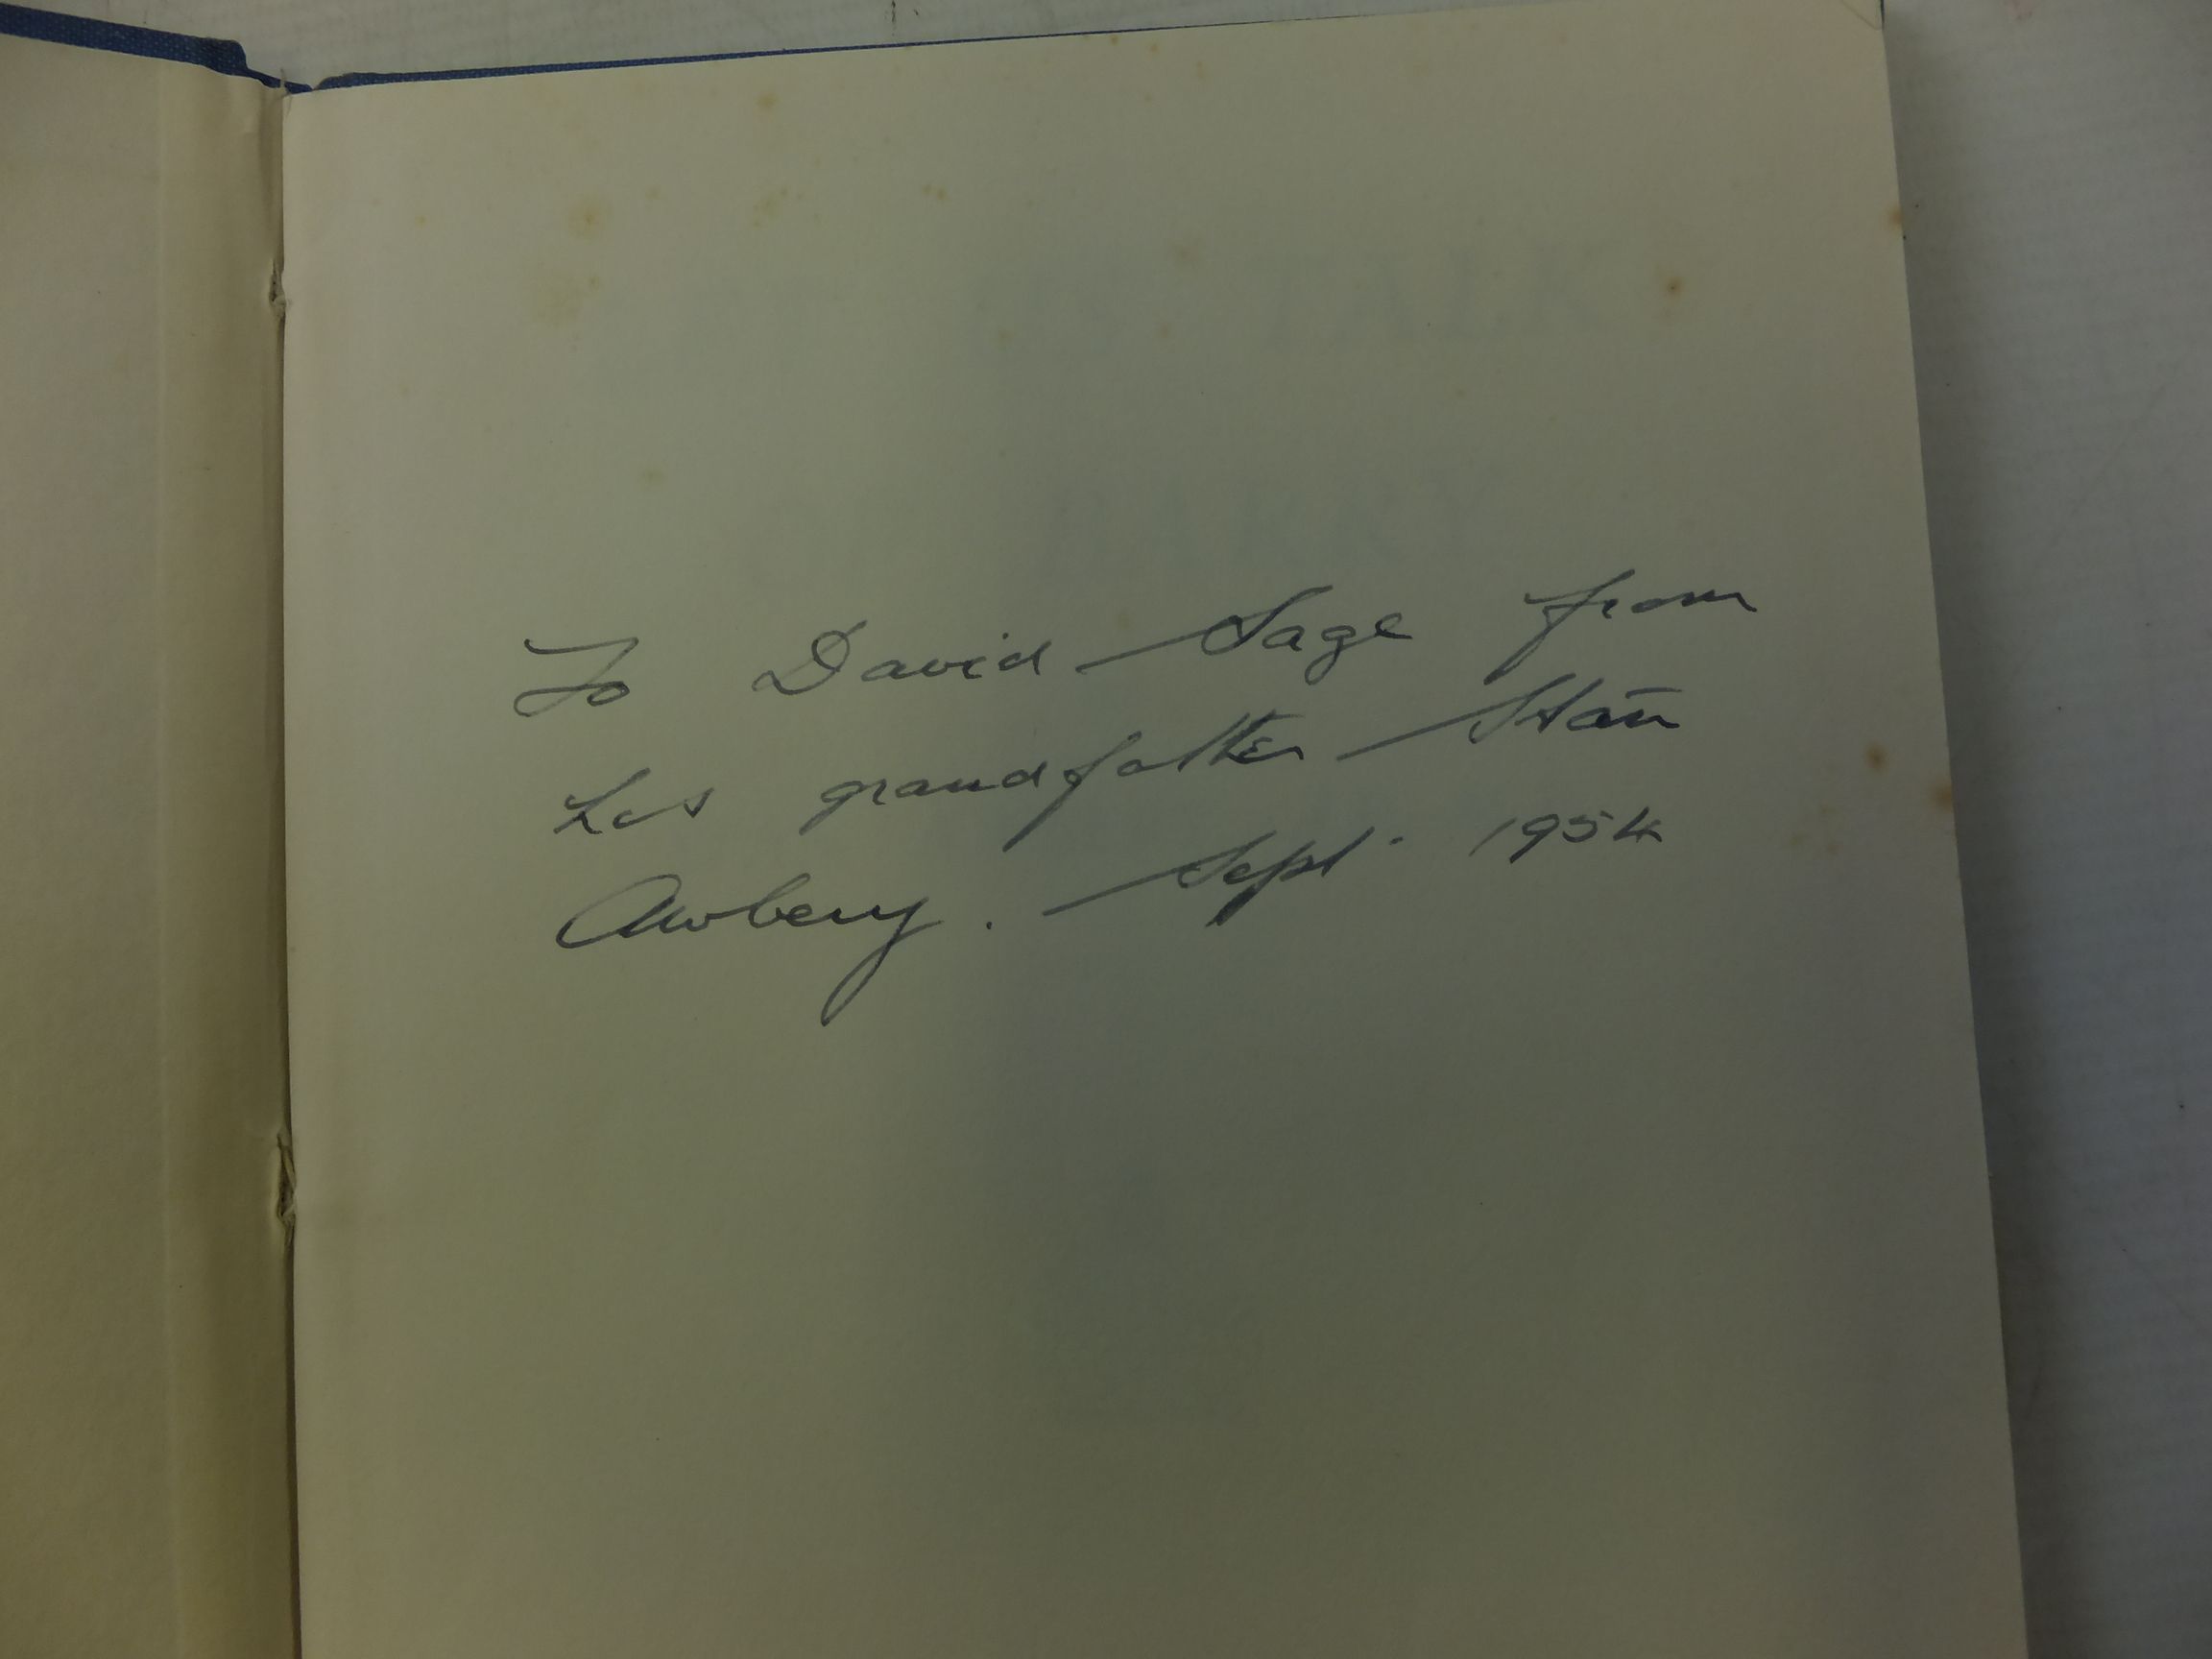 TALK
BARRY
To David Sage from
his grandfather Stan
Awbery. Sept. 1954